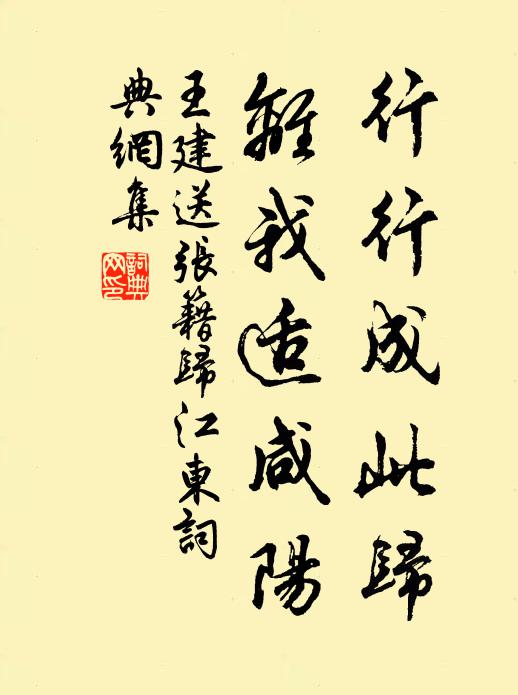 行行成此歸
離我适咸陽
王建送張籍歸江東詞
典網集
詞典网印